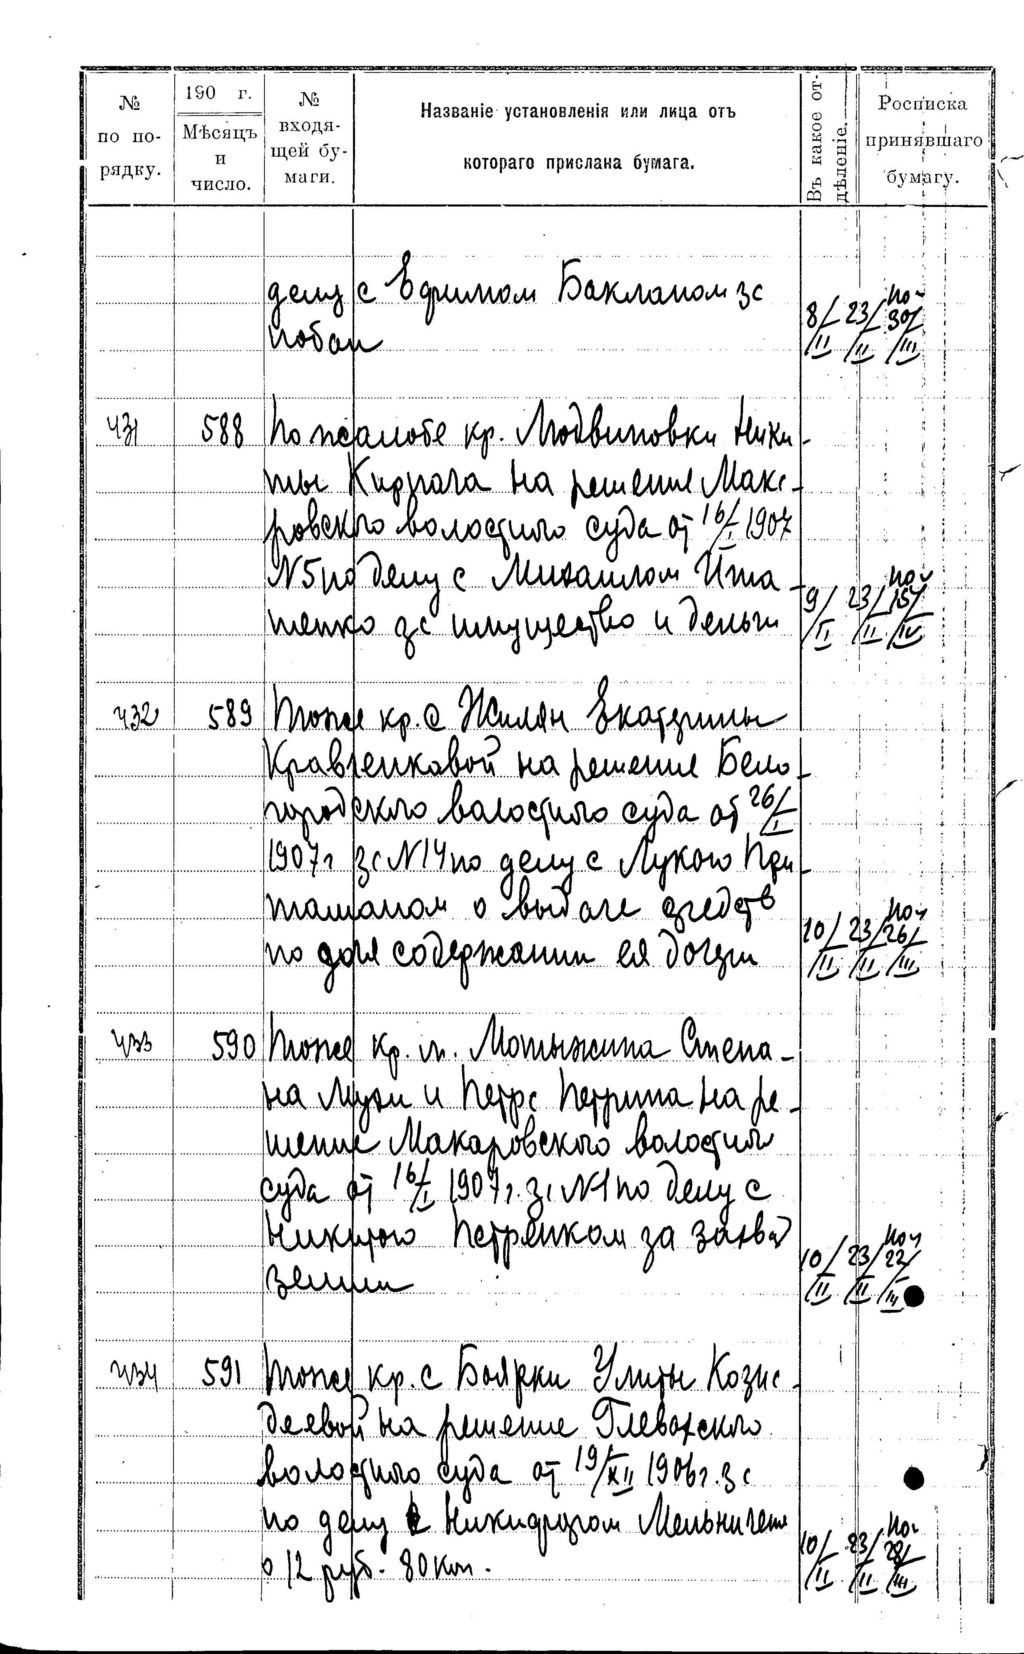 № по порядку.
190 г.
Мѣсяцъ и число.
№ входящей бумаги.
Названіе установленія или лица отъ
котораго прислана бумага.
Въ какое отдѣленіе.
Росписка принявшаго бумагу.
делу с Ефримом Бакланом за
побои
8/II 23/II 30/III
431 588 По жалобе кр. Людвиновки Ники-
ты Кирпача на решение Мака-
ровского волостного суда от 16/I 1907
N5 по делу с Михаилом Игна-
тенко за имущество и деньги
9/II 23/II 15/IV
432 589 Тоже кр. с Жилян Екатерины
Кравченковой на решение Бело-
городского волостного суда от 26/I
1907 г за N14 по делу с Лукою При-
о выдаче средств
по для содержании ея дочери
10/II 23/II 26/III
433 590 Тоже кр. м. Мотыжина Степа-
на и Петра Петрина на ре-
шение Макаровского волостного
суда от 16/I 1907 г. за N1 по делу с
Никитою Петренком за захват
земли
10/II 23/II 22/III
434 591 Тоже кр. с Боярки Улиты Коза-
деевой на решение Глевахского
волостного суда от 19/XII 1906 г. за
по делу с Никифором Мельничен
о 12 руб. 80 коп.
10/II 23/II 28/III